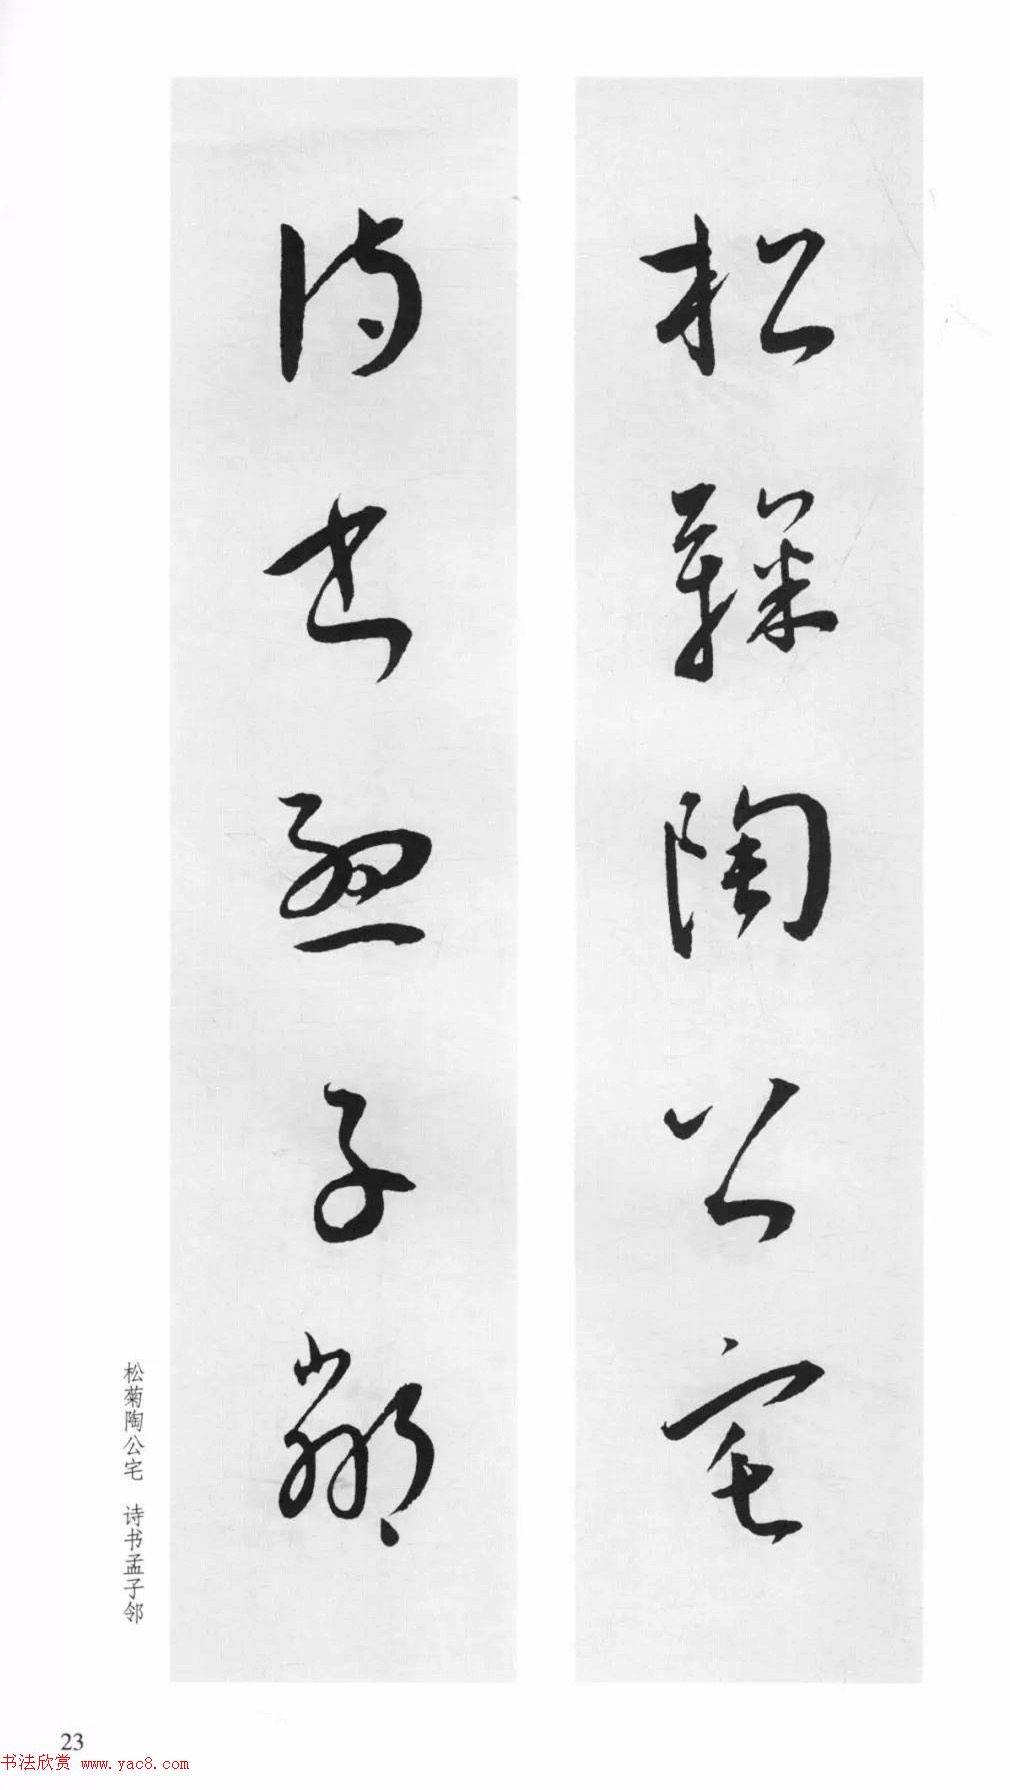 松鞠陶公宅
诗书孟子邻
松菊陶公宅 诗书孟子邻
23
书法欣赏 www.yac8.com